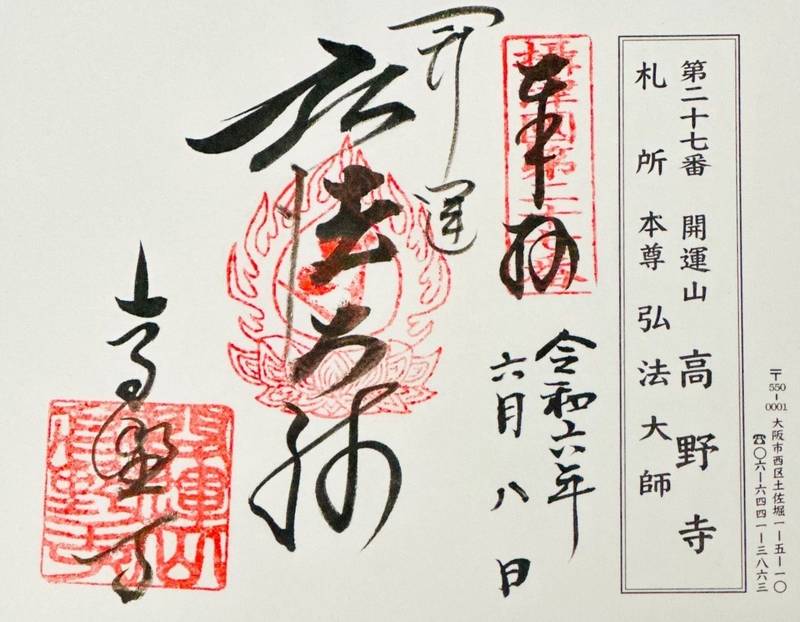 〒550-0001 大阪市西区土佐堀一ー五ー一〇
☎〇六ー六四四一ー三八六三
第二十七番 開運山 高野寺
札所本尊 弘法大師
奉拝
令和六年
六月八日
開運
弘法大師
高野寺